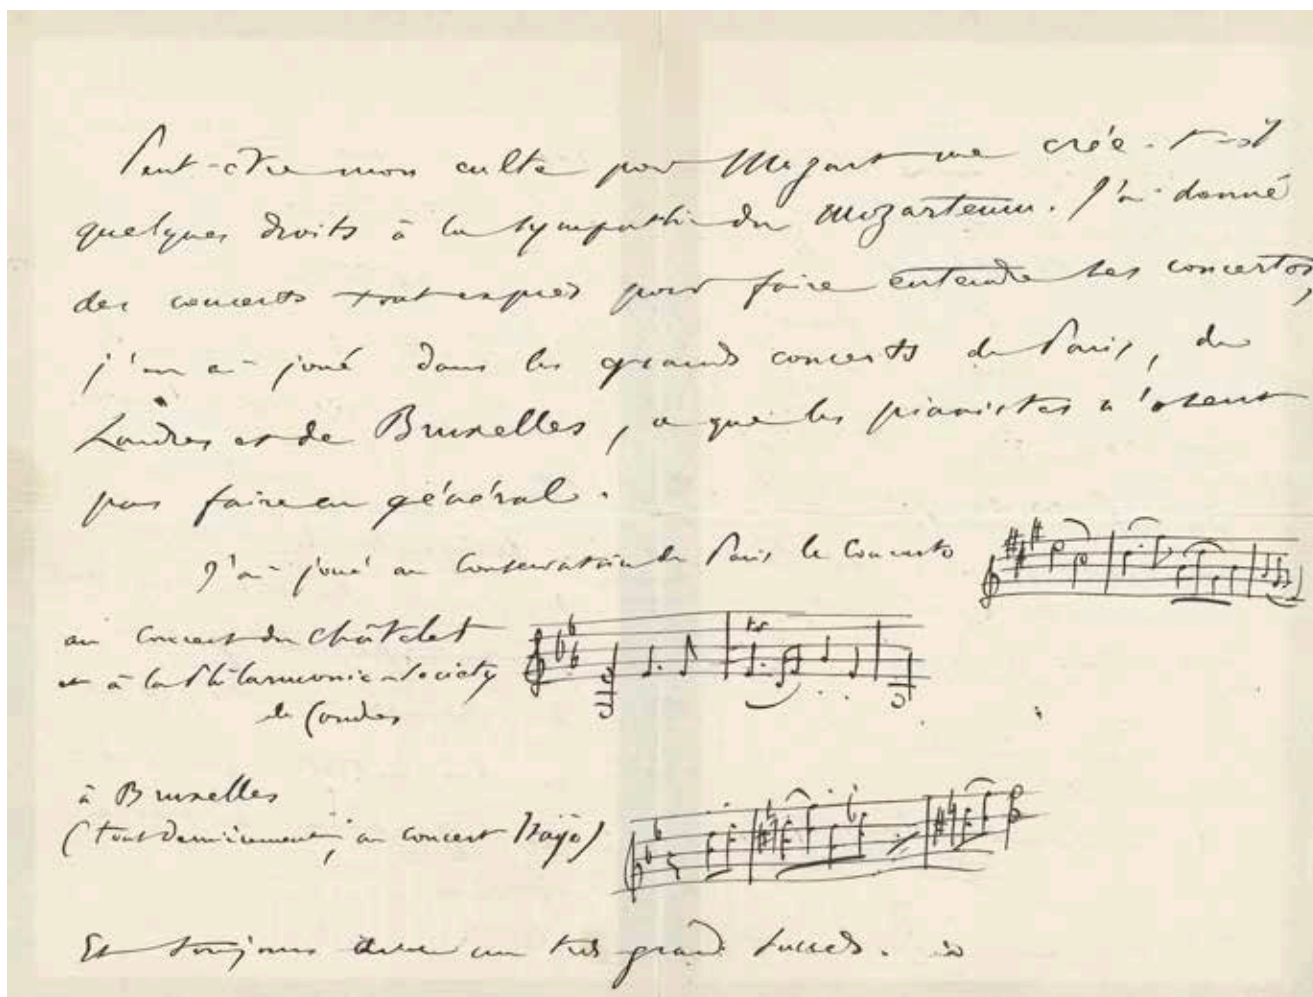 Peut-être mon culte pour Mozart me crée-t-il
quelques droits à la sympathie du Mozarteum. J'ai donné
des concerts tout exprès pour faire entendre ses concertos,
j'en ai joué dans les grands concerts de Paris, de
Londres et de Bruxelles, ce que les pianistes n'osent
pas faire en général.
J'ai joué au Conservatoire de Paris le Concerto
au Concert du Châtelet
et à la Philarmonic Society
de Londres
à Bruxelles
(tout dernièrement, au concert Isaÿe)
Et toujours avec un très grand succès.